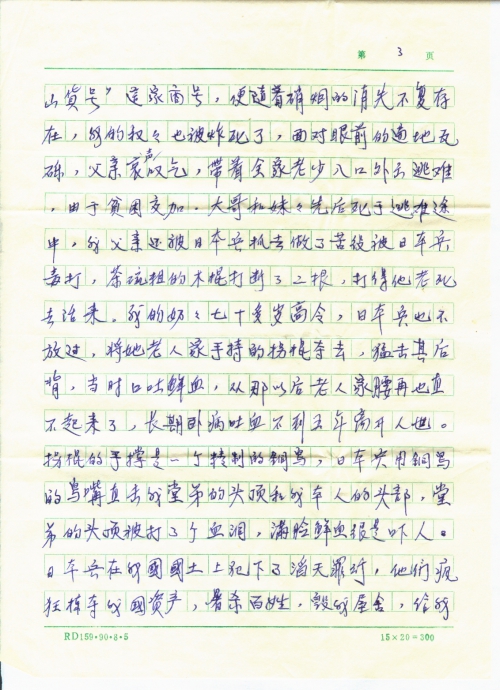 第 3 页
山货号”这家商号，便随着硝烟的消失不复存
在，我的叔々也被炸死了，面对眼前的遍地瓦
砾，父亲哀声叹气，带着全家老少八口外出逃难
，由于贫困交加，大哥和妹々先后死于逃难途
中，我父亲还被日本兵抓去做了苦役被日本兵
毒打，茶碗粗的木棍打断了二根，打得他老死
去活来。我的奶々七十多岁高令，日本兵也不
放过，将她老人家手持的拐棍夺去，猛击其后
背，当时口吐鲜血，从那以后老人家腰再也直
不起来了，长期卧病吐血不到五年离开人世。
拐棍的手撑是一个特制的铜鸟，日本兵用铜鸟
的鸟嘴直击我堂弟的头顶和我本人的头部，堂
弟的头顶被打了个血洞，满脸鲜血很是吓人。
日本兵在我國國土上犯下了滔天罪行，他们疯
狂掠夺我國资产，屠杀百姓，毁我屋舍，给我
RD159·90·8·5
15×20=300